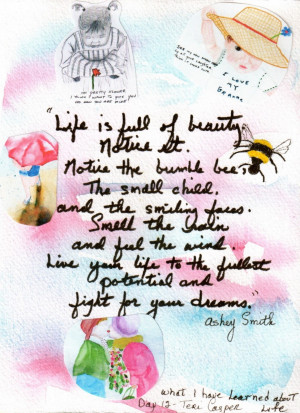 I LOVE
MY
"Life is full of beauty.
Notice it.
Notice the bumble bee.
The small child,
and the smiling faces.
Smell the rain
and feel the wind.
Live your life to the fullest
potential and
fight for your dreams."
Ashey Smith
what I have Learned about
Life
Day 12 - Teri Casper